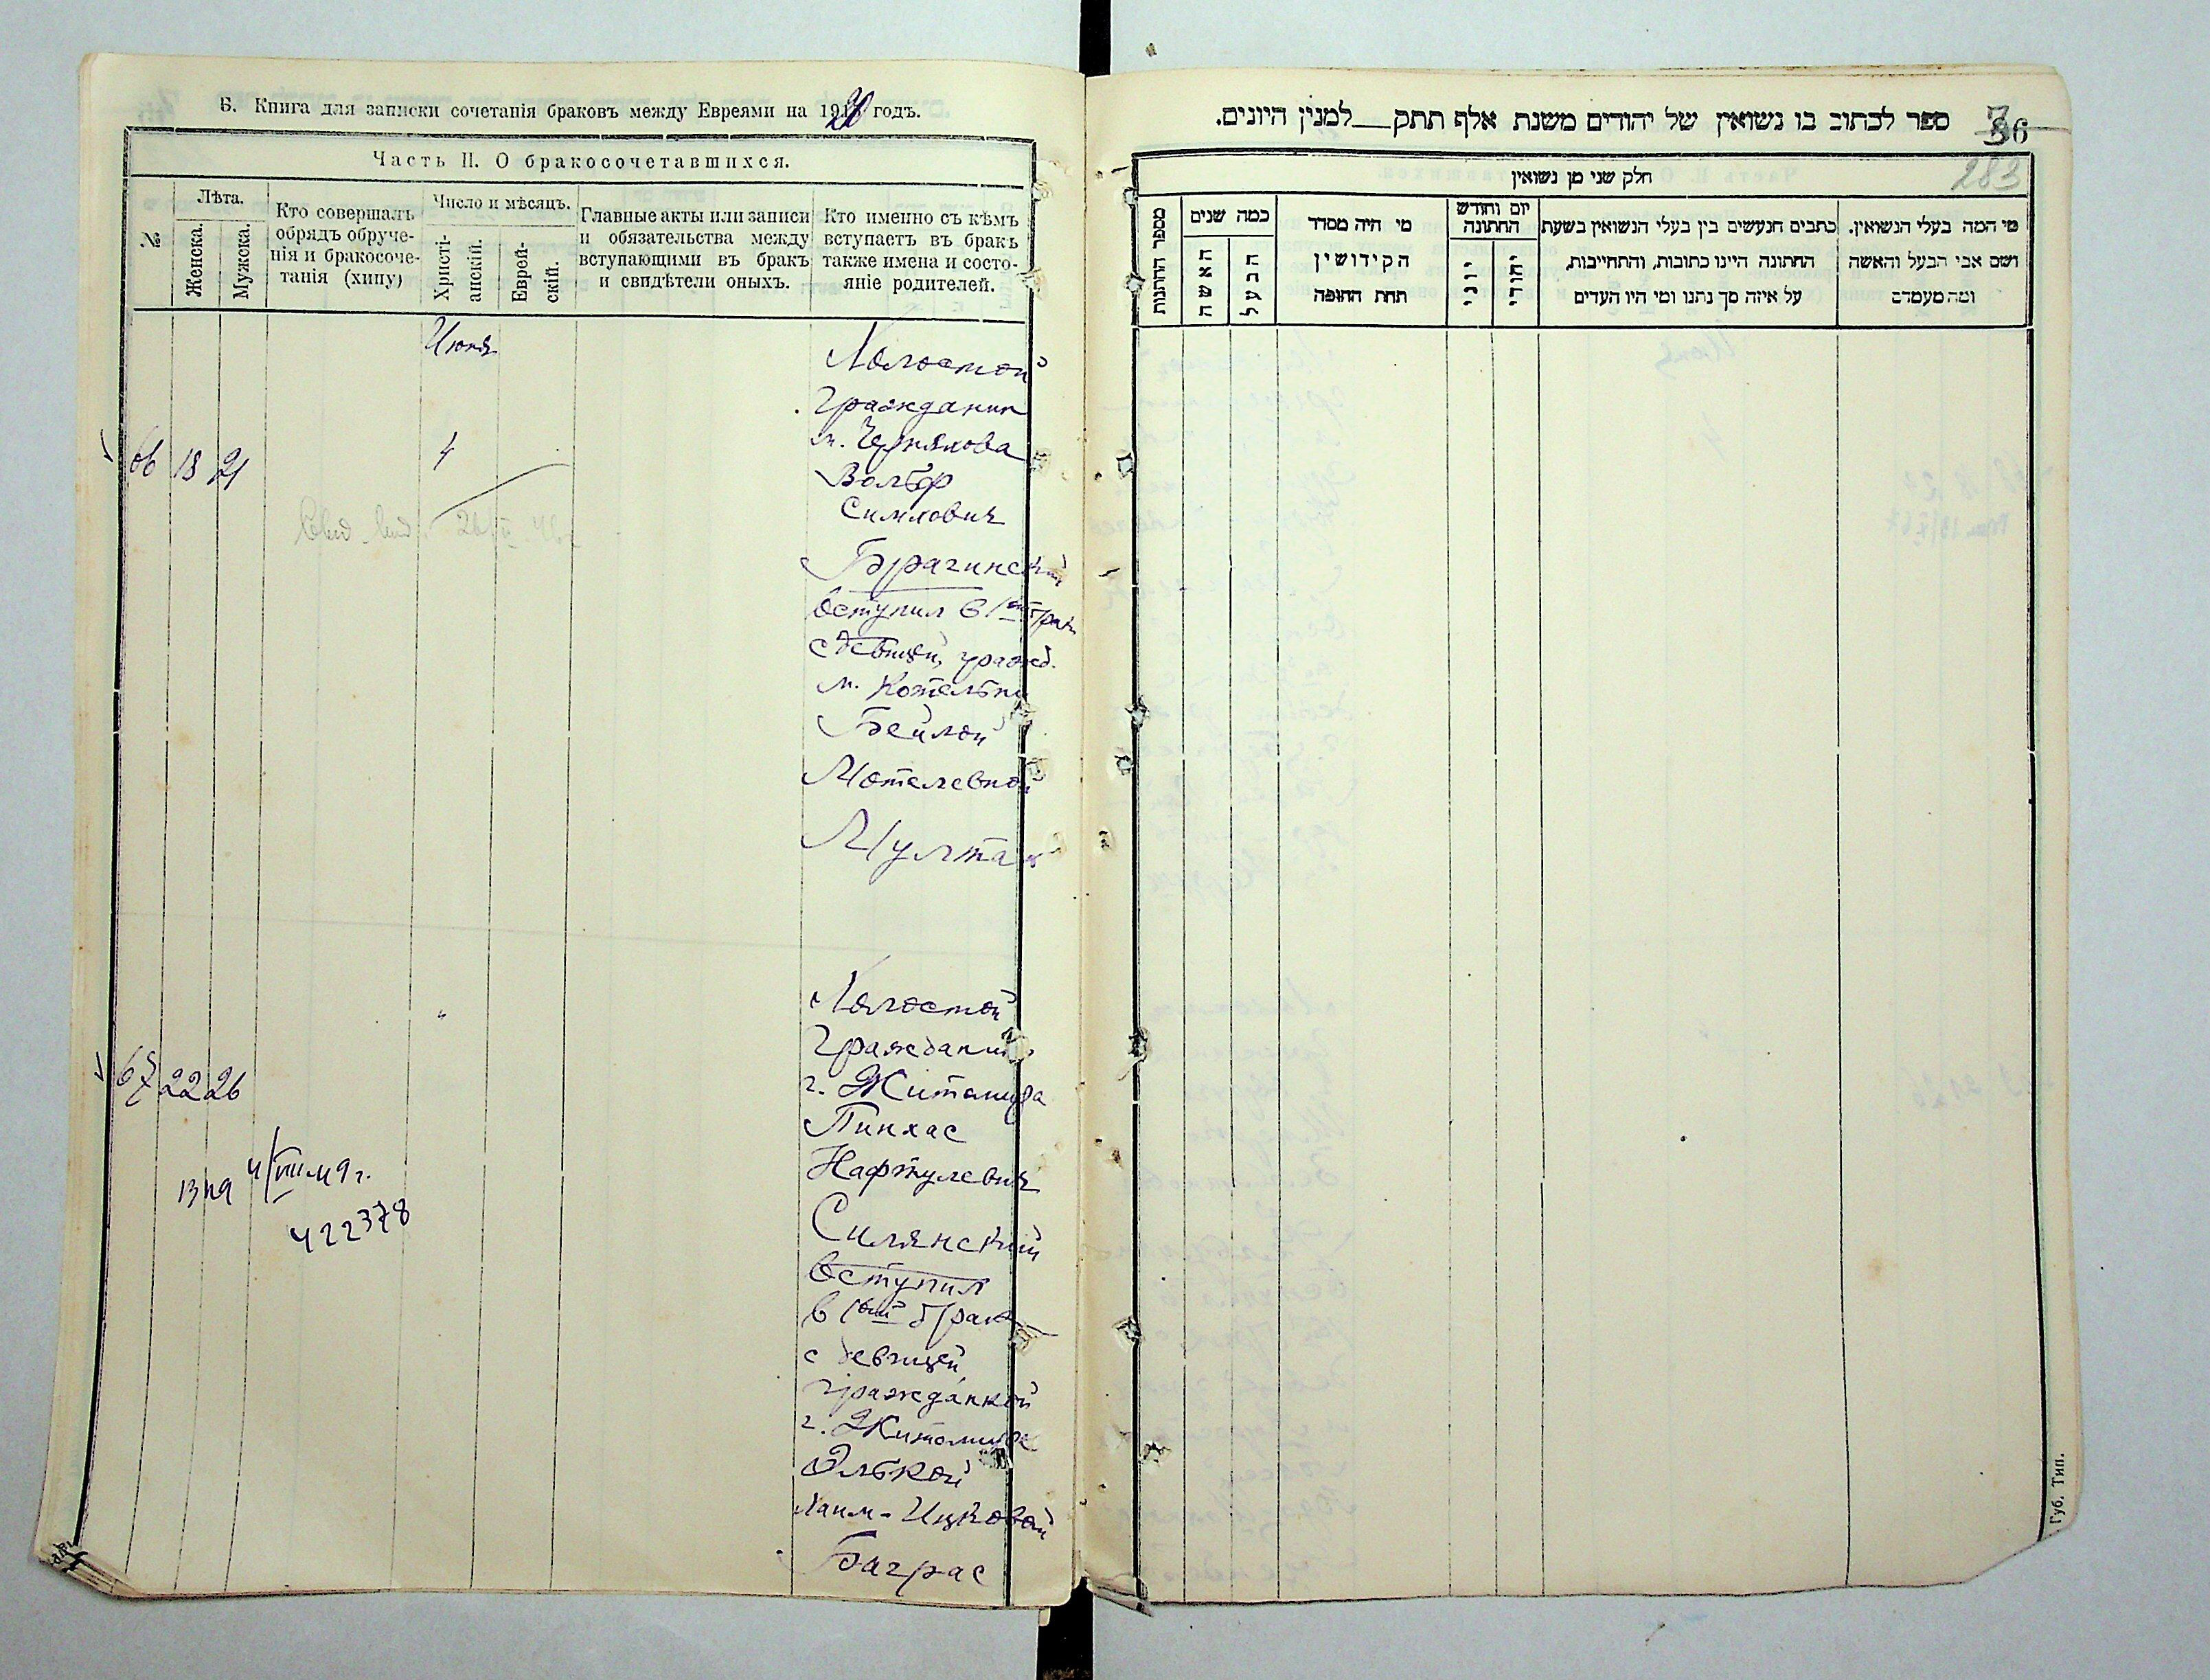 Б. Книга для записки сочетанія браковъ между Евреями на 1920 годъ.
Часть II. О бракосочетавшихся.
№
Лѣта.
Женска.
Мужска.
Кто совершалъ
обрядъ обруче-
нія и бракосоче-
танія (хипу)
Число и мѣсяцъ.
Христі-
анскій.
Еврей-
скій.
Главные акты или записи
и обязательства между
вступающими въ бракъ
и свидѣтели оныхъ.
Кто именно съ кѣмъ
вступаетъ въ бракъ
также имена и состо-
яніе родителей.
Июня
66 18 21
4
Холостой
Гражданин
м. Черняхова
Вольф
Симхович
Брагинский
вступил в 1ый брак
с девицей, гражд.
м. Котельни
Бейлой
Мотелевной
Мултан
67 22 26
"
4/VIII 49 г.
422378
Холостой
Гражданин
г. Житомира
Пинхас
Нафтулевич
Силянский
вступил
в 1ый брак
с девицей
гражданкой
г. Житомира
Элькой
Хаим-Ицковой
Баграс
ספר לכתוב בו נשואין של יהודים משנת אלף תתק__למנין היונים.
36
283
חלק שני מן נשואין
מספר החתנות
כמה שנים
האשה
הבעל
מי היה מסדר
הקידושין
תחת החופה
יום וחודש
החתונה
יוני
יהודי
כתבים הנעשים בין בעלי הנשואין בשעת
החתונה היינו כתובות, והתחייבות,
על איזה סך נתנו ומי היו העדים
מי המה בעלי הנשואין.
ושם אבי הבעל והאשה
ומה מעמדם
Губ. Тип.